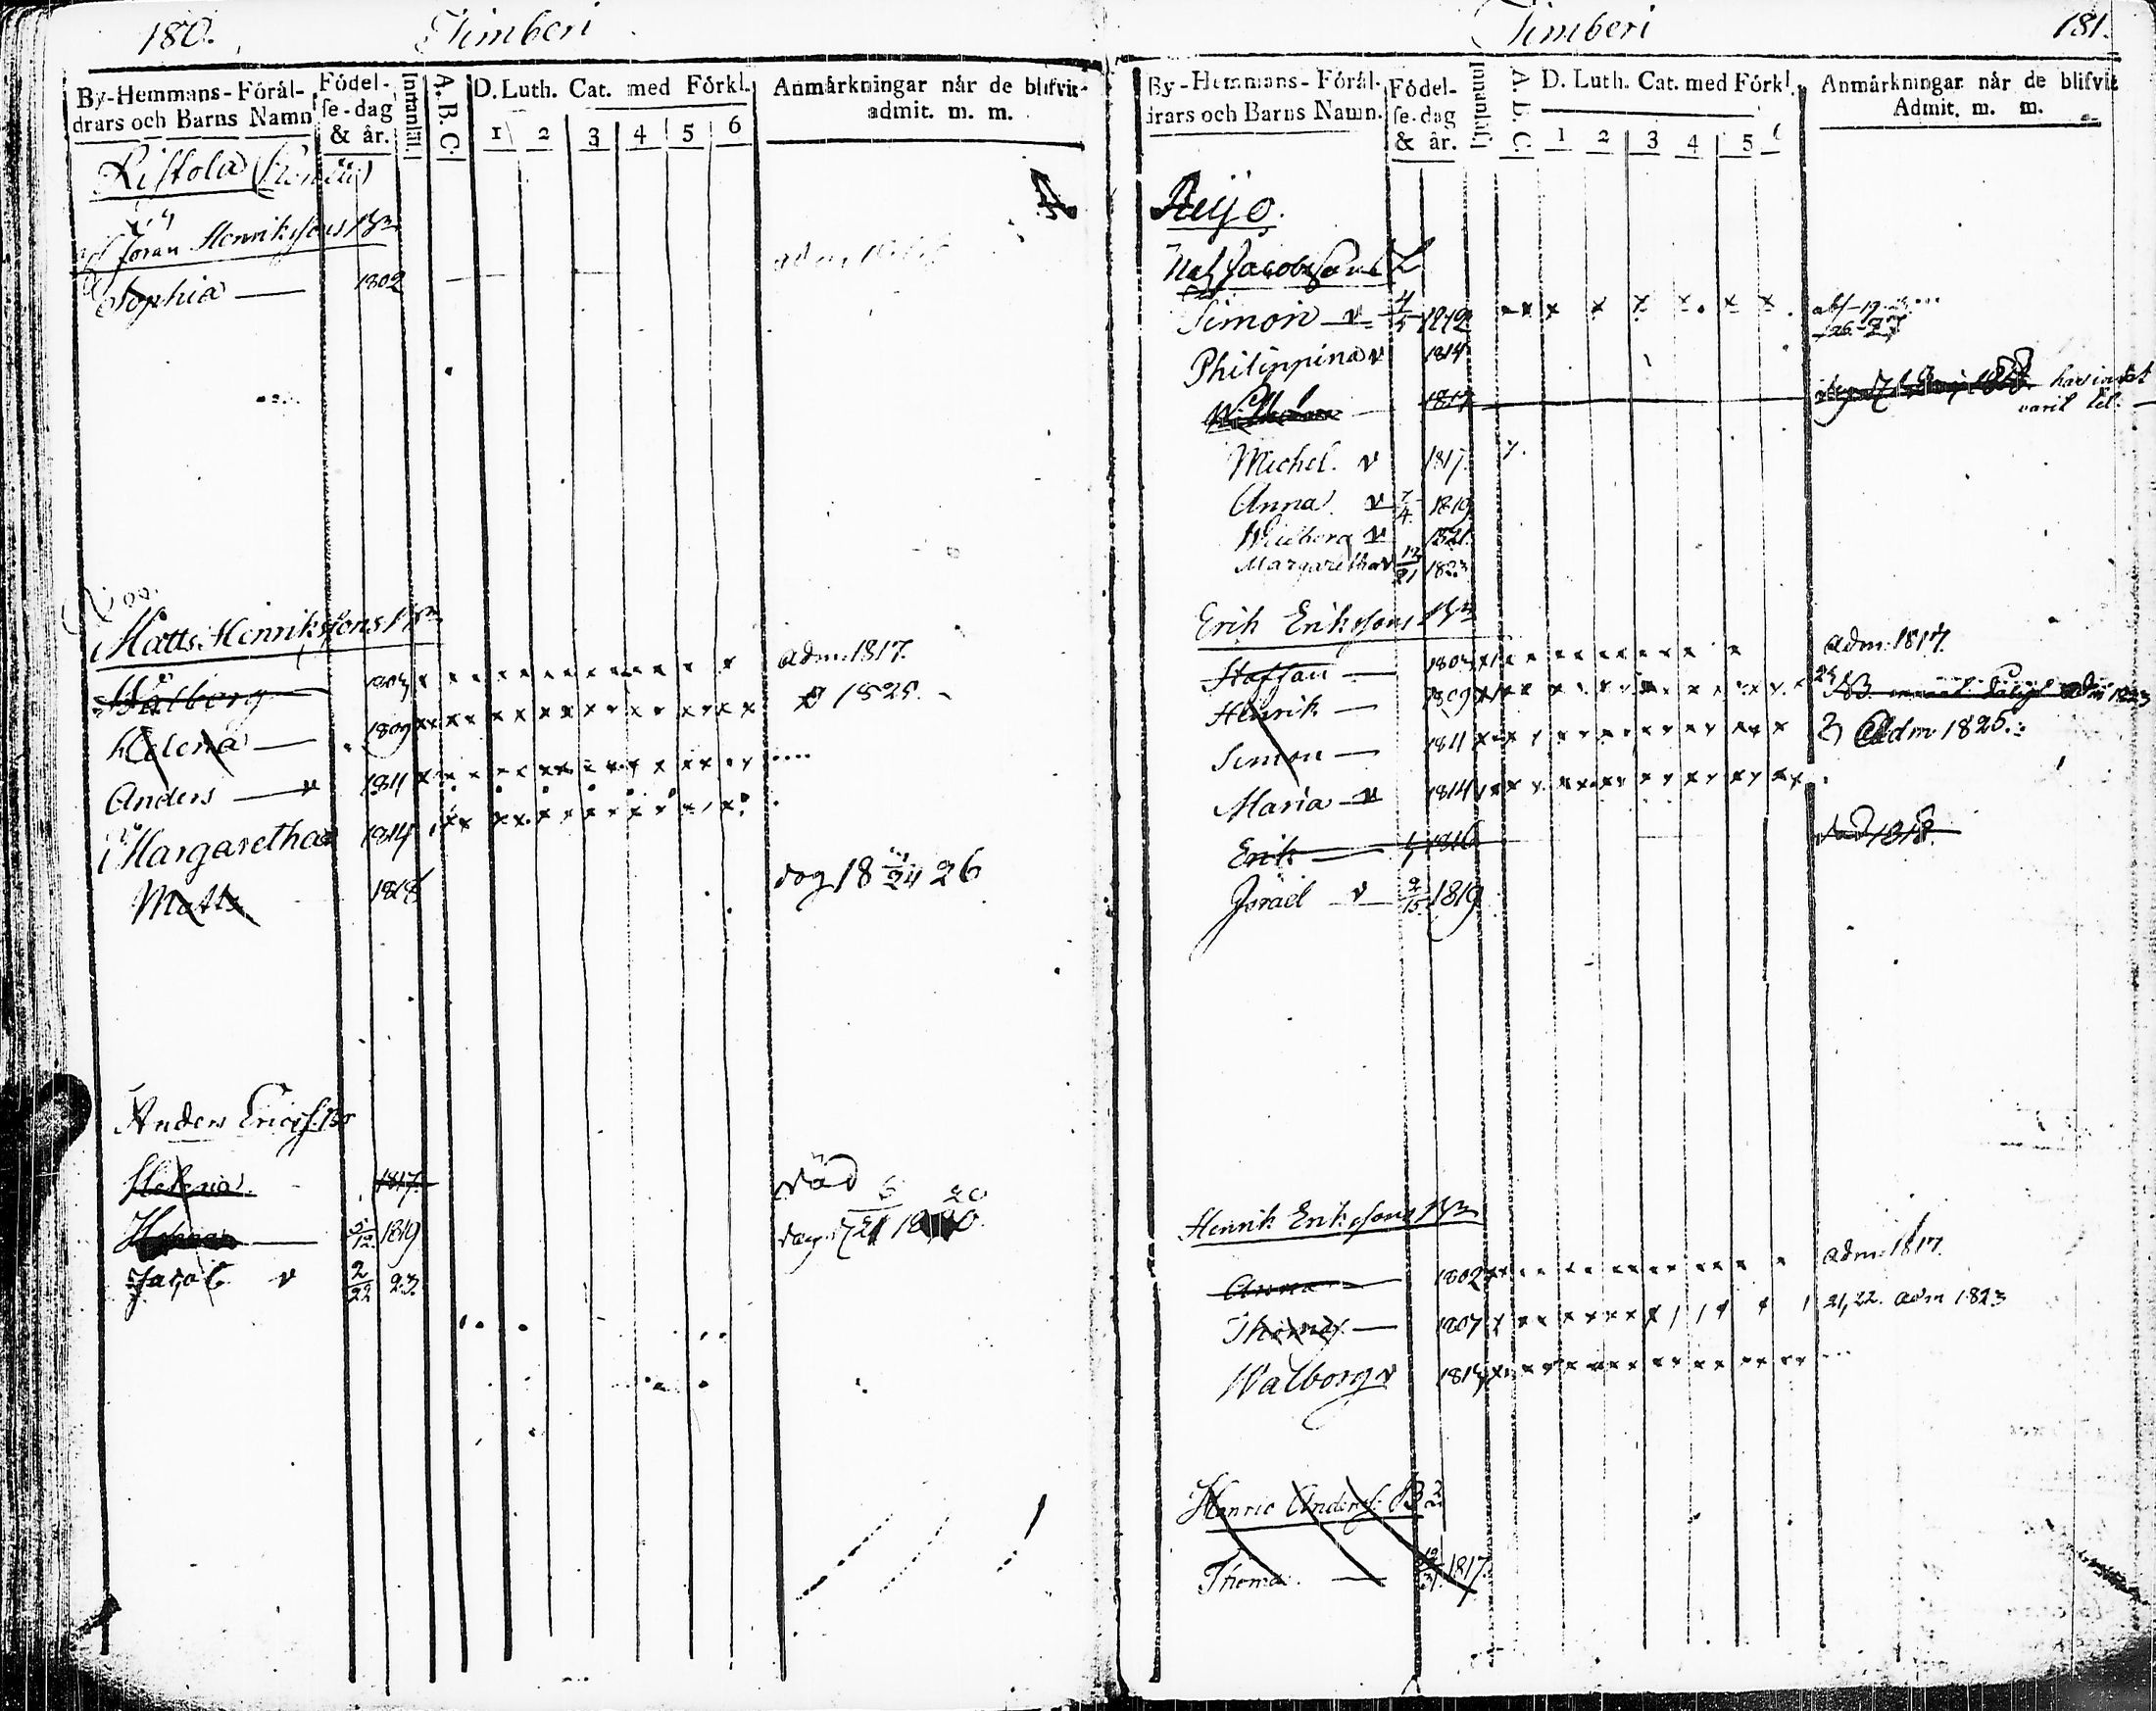 180. Timberi
By-Hemmans-Förål-
drars och Barns Namn
Födel-
se-dag
& år.
Innanläs.
A. B. C.
D. Luth. Cat. med Förkl.
1 2 3 4 5 6
Anmärkningar når de blifvit
admit. m. m.
Ristola
Jöran Henrikssons Bn
Sophia — 1802
Matts Henrikssons Bn
Walborg 1804 adm. 1817.
Helena — 1809 1825.
Anders — v 1811
Margaretha 1814
Matts 1818 dog 18 24 26
Anders Ericss. Bn
Helena. 1817. död
— 5/12 1819
Jacob v 2/22 23.
Timberi 181.
By-Hemmans-Förål-
drars och Barns Namn.
Födel-
se-dag
& år.
Innanläs.
A. B. C.
D. Luth. Cat. med Förkl.
1 2 3 4 5 6
Anmärkningar når de blifvit
Admit. m. m.
Reijo.
Simon v 1812
Philippina v 1814
Wilhelm — 1817 har intet
varit til
Michel. v 1817.
Anna v 7/4 1819
Walborg v 1821.
Margaretha v 12/21 1823
Erik Erikssons Bn
Staffan — 1804 adm. 1817.
Henrik — 1809 adm 1823
Simon — 1811 Adm. 1825.
Maria v 1814
Erik — 1816 död 1818.
Israel v 9/15 1819
Henrik Erikssons Bn
Anna — 1802 adm. 1817.
Thomas — 1807 21, 22. adm 1823
Walborg v 1814
Henric Anderss. Bn
Thomas — 1817.